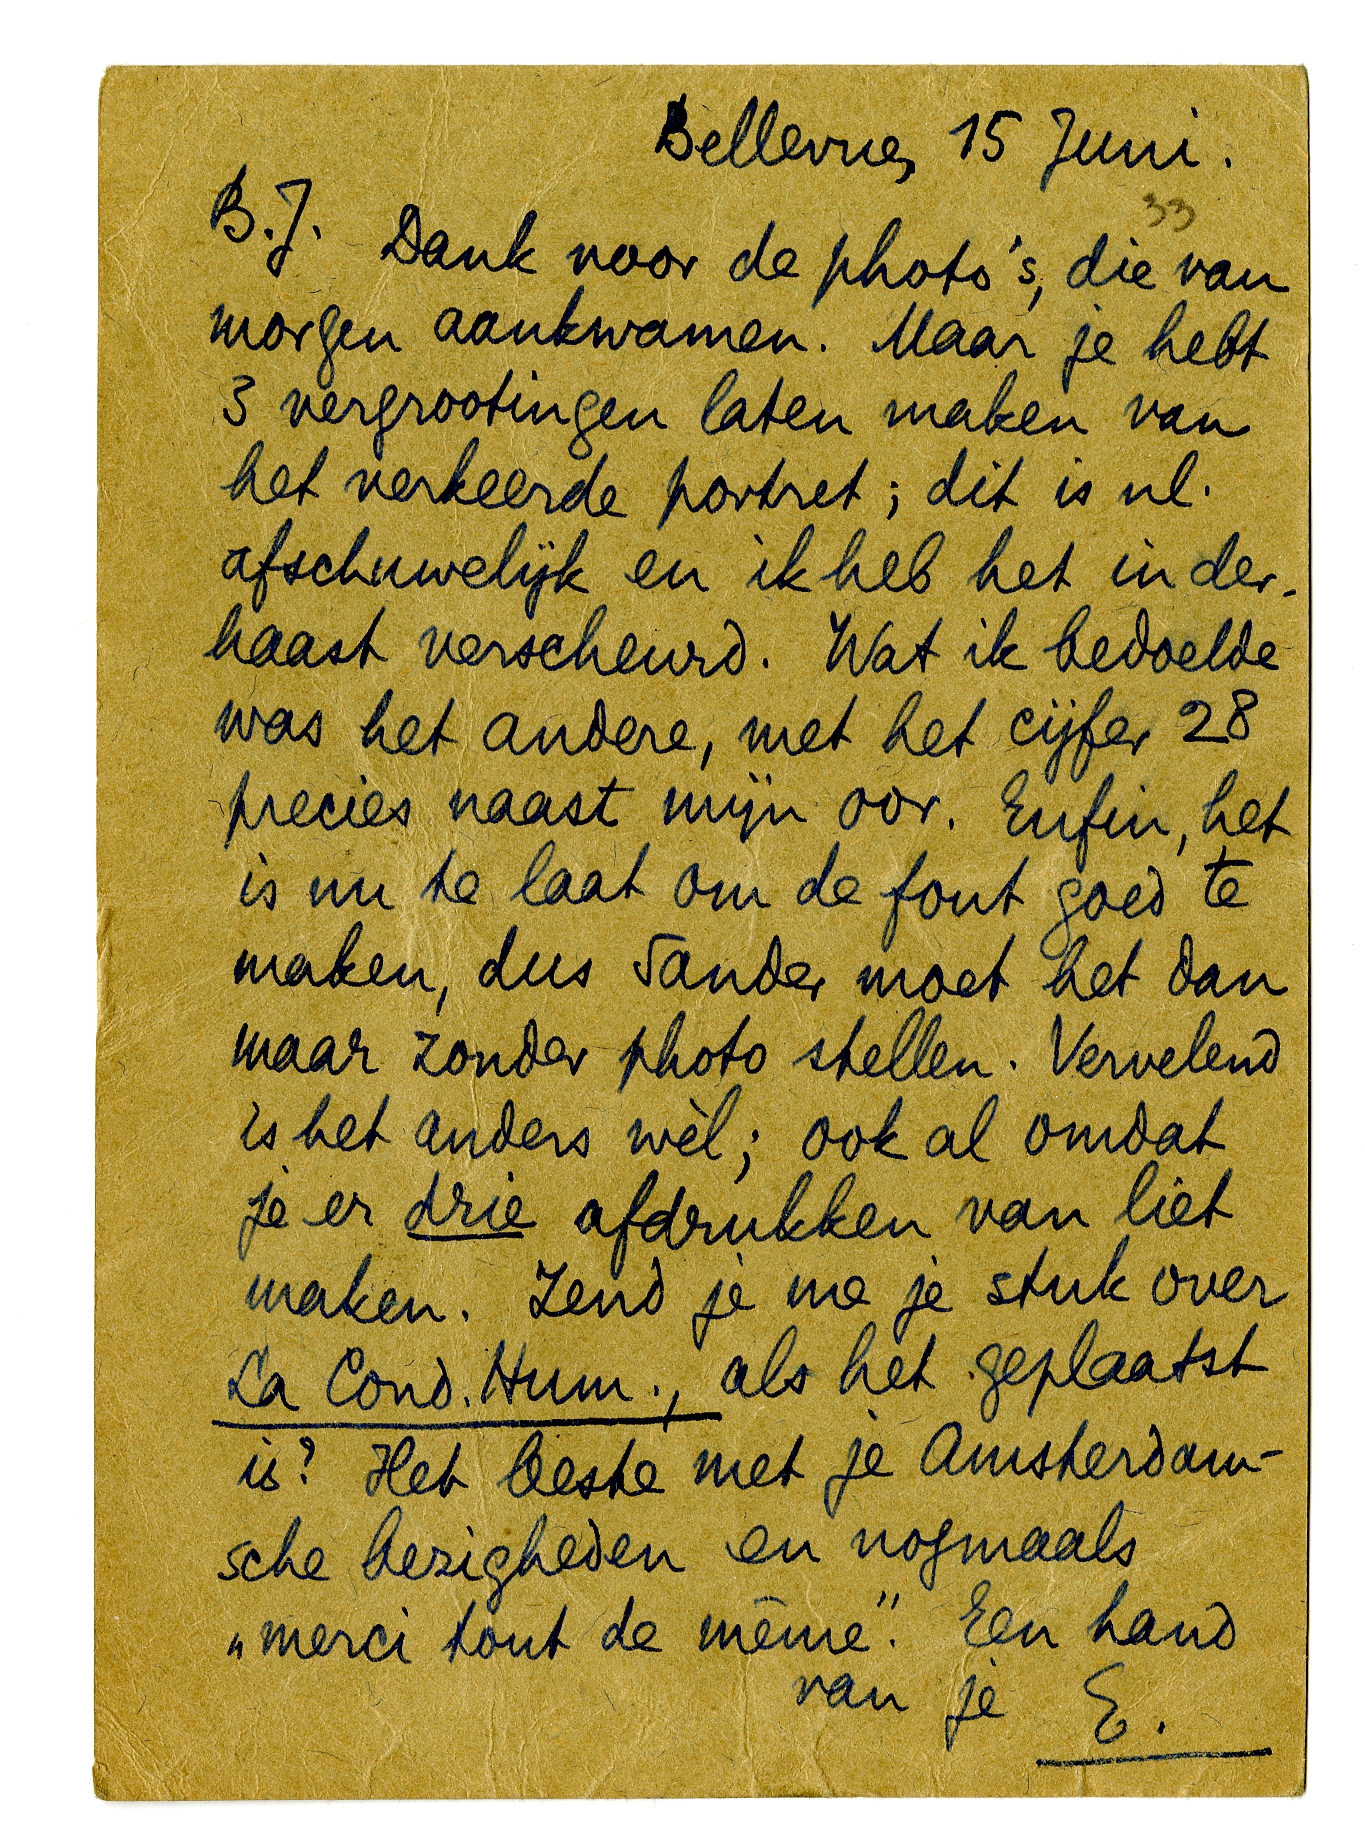 Bellevue, 15 Juni.
33
B.J. Dank voor de photo's, die van
morgen aankwamen. Maar je hebt
3 vergrootingen laten maken van
het verkeerde portret; dit is nl.
afschuwelijk en ik heb het in der-
haast verscheurd. Wat ik bedoelde
was het andere, met het cijfer 28
precies naast mijn oor. Enfin, het
is nu te laat om de fout goed te
maken, dus Sander moet het dan
maar zonder photo stellen. Vervelend
is het anders wèl; ook al omdat
je er drie afdrukken van liet
maken. Zend je me je stuk over
La Cond. Hum., als het geplaatst
is? Het beste met je Amsterdam-
sche bezigheden en nogmaals
„merci tout de même". Een hand
van je E.